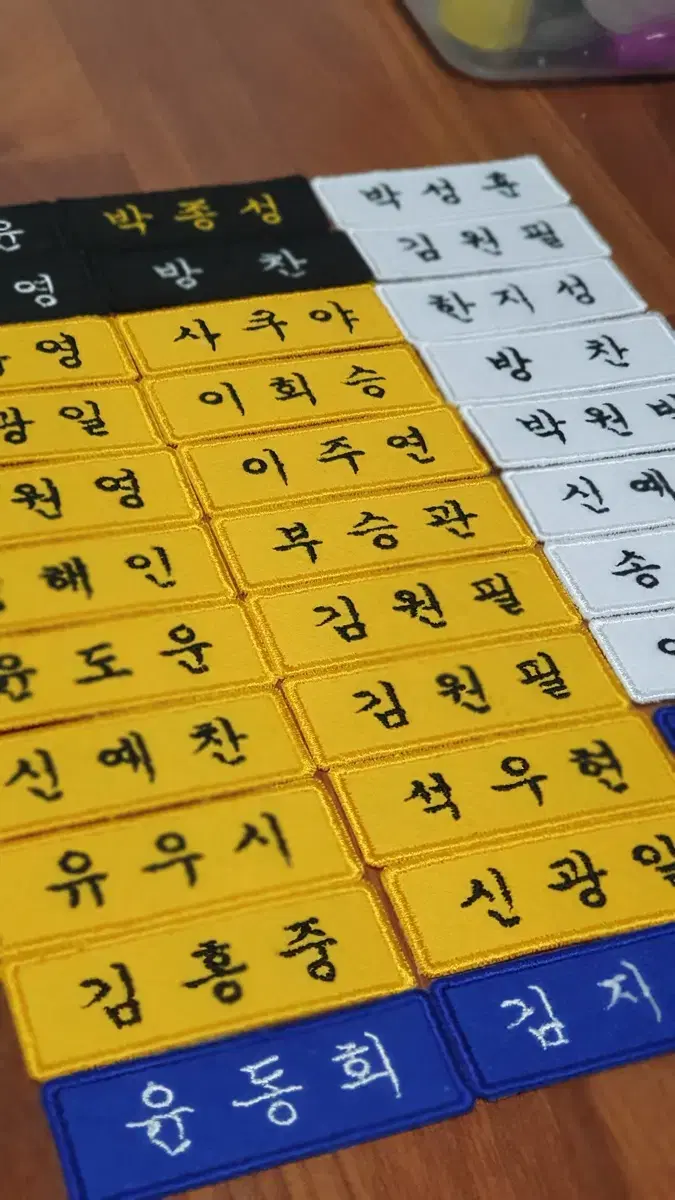 박종성
방찬
영
사쿠야
영
이희승
광일
이주연
원영
부승관
해인
김원필
윤도운
김원필
신예찬
석우현
유우시
신광일
김홍중
김지
윤동희
박성훈
김원필
한지성
방찬
박원빈
신예
송